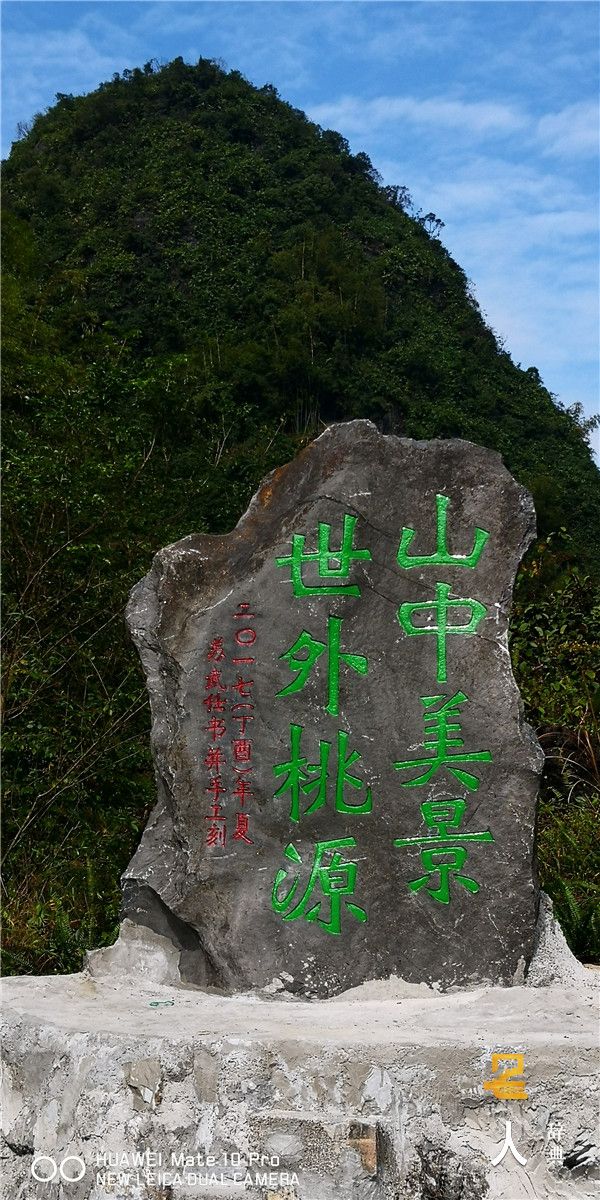 山中美景
世外桃源
二〇一七(丁酉)年夏
武仕书并手工刻
HUAWEI Mate 10 Pro
NEW LEICA DUAL CAMERA
人
辞典